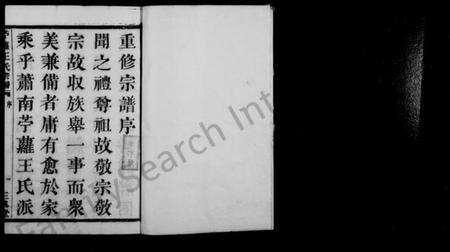 重修宗譜序
聞之禮尊祖故敬宗敬
宗故收族舉一事而衆
美兼備者庸有愈於家
乘乎蕭南苧蘿王氏派
FamilySearch Int